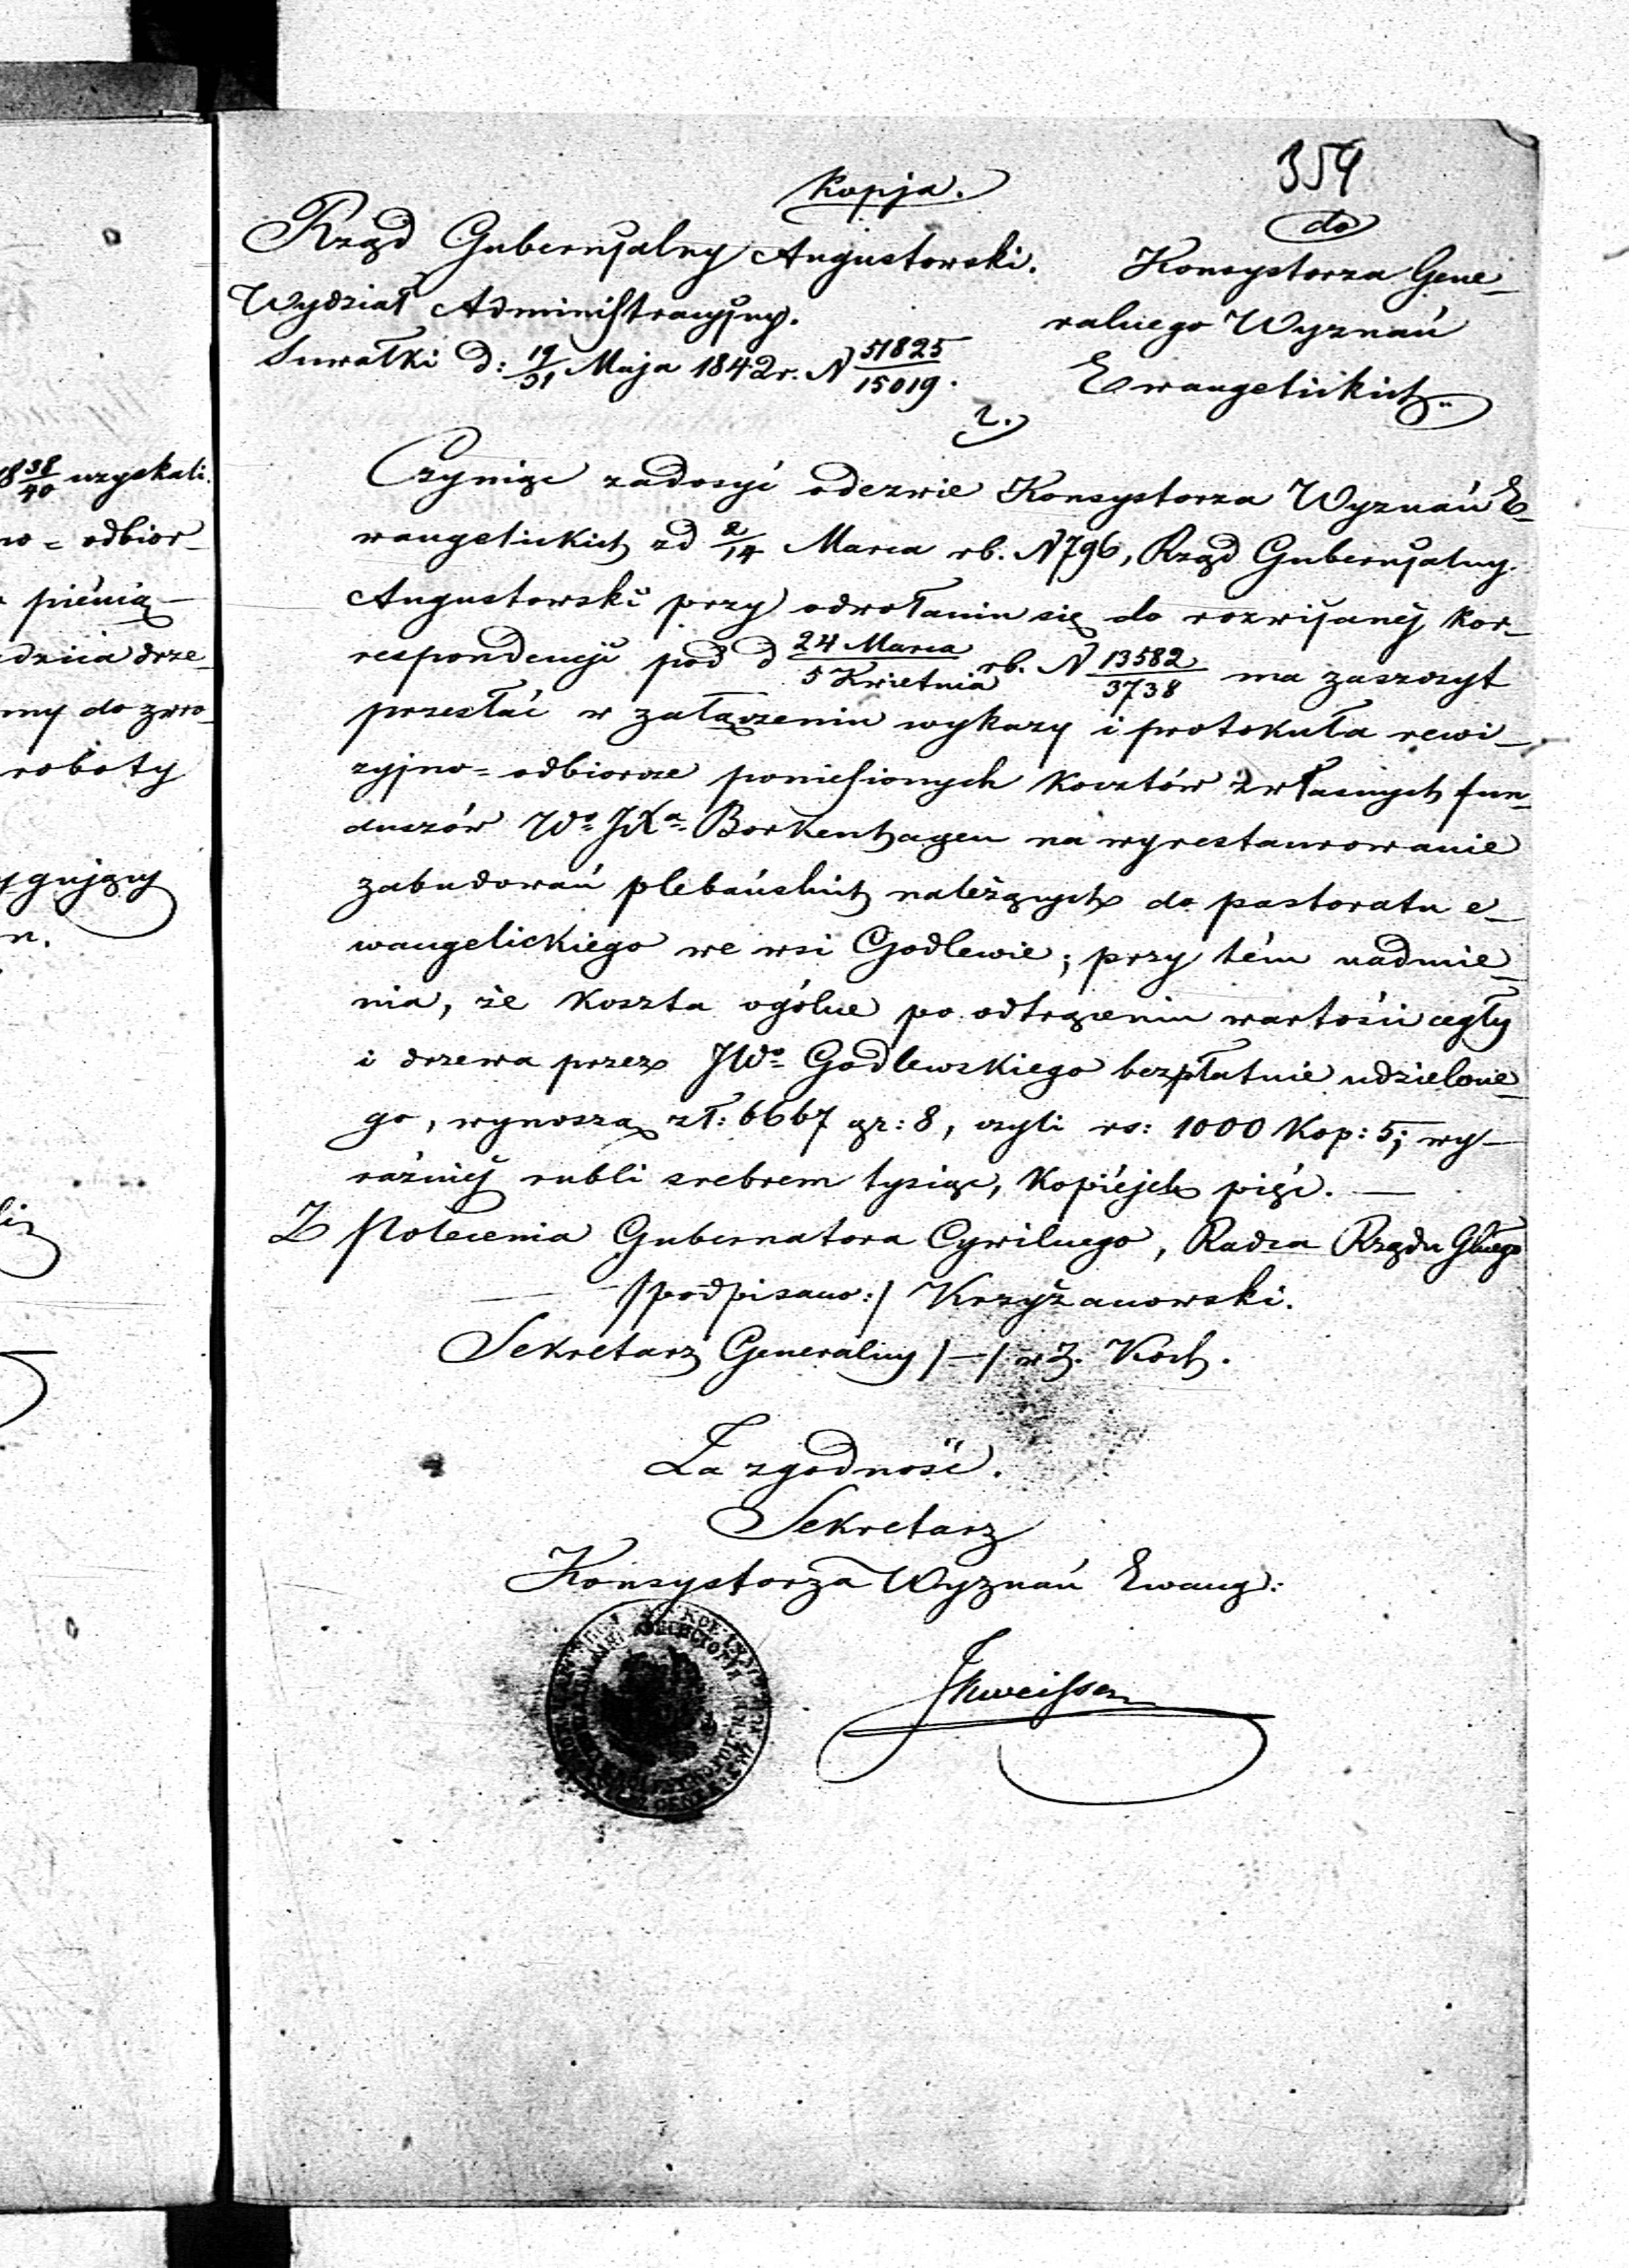 354
Kopja.
Rząd Gubernjalny Augustowski.
Wydział Administracyjny.
Suwałki d: 19/31 Maja 1842 r. N 51825/15019.
do
Konsystorza Gene-
ralnego Wyznań
Ewangelickich
Czyniąc zadosyć odezwie Konsystorza Wyznań E-
wangelickich zd 2/14 Marca rb. N 796, Rząd Gubernjalny
Augustowski przy odwołaniu się do rozwijanej kor-
respondencji pod d 24 Marca/5 Kwietnia rb. N 13582/3738 ma zaszczyt
przesłać w załączeniu wykazy i protokuła rewi-
zyjno=odbiorcze poniesionych kosztów z własnych fun-
duszów Wo JXa Borkenhagen na wyrestaurowanie
zabudowań plebańskich należących do pastoratu e-
wangelickiego we wsi Godlewie; przy tém nadmie-
nia, że koszta ogólne po odtrąceniu wartości cegły
i drzewa przez JWo Godlewskiego bezpłatnie udzielone-
go, wynoszą zł: 6667 gr: 8, czyli rs: 1000 Kop: 5; wy-
raźniej rubli srebrem tysiąc, kopiéjek pięć. —
Z Polecenia Gubernatora Cywilnego, Radca Rządu Głnego
/podpisano:/ Krzyżanowski.
Sekretarz Generalny /—/ w Z. Koch.
Za zgodność.
Sekretarz
Konsystorza Wyznań Ewang:
18 38/40 uzyskali.
no=odbior-
pienią-
dzcia drze-
my do zwro-
roboty